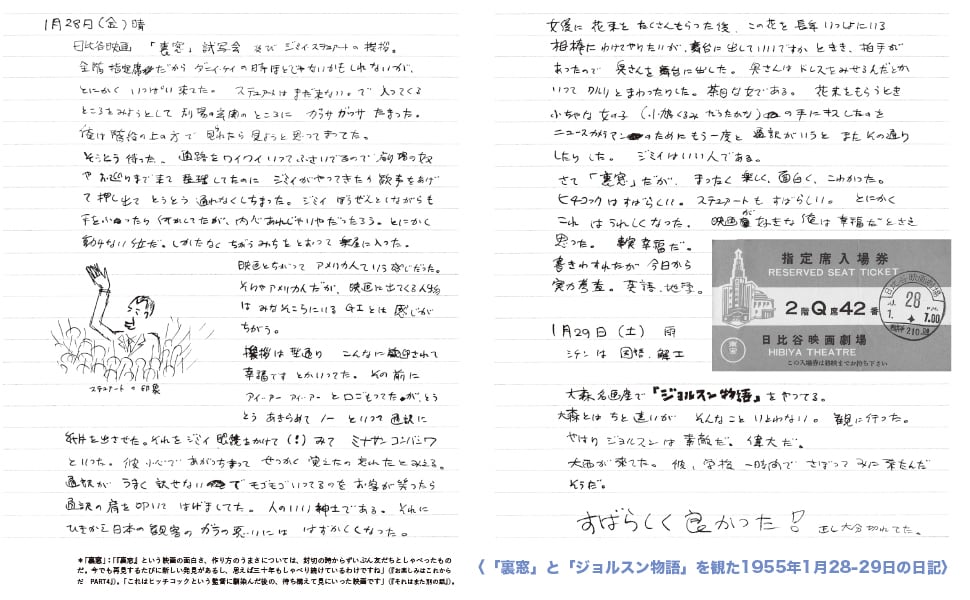 1月28日(金)晴
日比谷映画 「裏窓」試写会 及び ジミイ・スチュアートの挨拶。
全階指定席だから ダニイ・ケイの日本ほどじゃないかもしれないが、
とにかく いっぱい来てた。 スチュアートは まだ来ない。で 入ってくる
ところをみようとして 別の玄関のところに ガッサガッサ たまった。
俺は階段の上の方で 見れたら見ようと思ってまってた。
そうとう待った。 通路をワイワイいってふさいでるので 劇場の奴
や お巡りまで来て 整理してたのに ジミイがやってきたら 歓声をあげ
て押し出て とうとう 通れなくしちまった。 ジミイ ぼうぜんとしながらも
手をふったり 何かしてたが、内心あれじゃいやだったろう。とにかく
動けない位だ。しかたなく ちがうみちをとおって 楽屋に入った。
映画とちがって アメリカ人ていう感じだった。
そりゃアメリカ人だが、映画に出てくる人物
は みなそこらにいる GIとは 感じが
ちがう。
スチュアート の 印象
挨拶は 型通り こんなに歓迎されて
幸福です とかいってた。 その前に
アイ―アー アイ―アー と口ごもってたが、とう
とう あきらめて ノー といって 通訳に
紙片を出させた。それを ジミイ 眼鏡をかけて(!)みて ミナサン コンバンワ
といった。彼 小心で あがっちまって せっかく 覚えたの 忘れたとみえる。
通訳が うまく 訳せないで モゴモゴいってるのを お客が笑ったら
通訳の肩を叩いて はげましてた。 人のいい紳士である。それに
ひきかえ日本の観客の ガラの悪いには はずかしくなった。
*「裏窓」:「『裏窓』という映画の面白さ、作り方のうまさについては、封切の時からずいぶん友だちとしゃべったもの
だ。今でも再見するたびに新しい発見があるし、思えば三十年もしゃべり続けているわけですね」(『お楽しみはこれから
だ PART4』)。「これはヒッチコックという監督に馴染んだ後の、待ち構えて見にいった映画です」(『それはまた別の話』)。
女優に 花束を たくさんもらった後、この花を長年いっしょにいる
相棒にわけてやりたいが、舞台に出していいですか ときき、拍手が
あったので 奥さんを舞台に出した。奥さんは ドレスをみせるんだとか
いって クルリとまわったりした。茶目な女である。 花束をもらうとき
小ちゃな女の子 (小鳩くるみ だったかな) の手にキスしたのを
ニュースカメラマンのためにもう一度と 通訳がいうと またその通り
したりした。 ジミイはいい人である。
さて 「裏窓」だが、 まったく 楽しく、面白く、こわかった。
ヒチコックはすばらしい。スチュアートも すばらしい。 とにかく
これ は うれしくなった。 映画がすきな俺は幸福だとさえ
思った。 幸福だ。
書きわすれたが 今日から
実力考査。英語、地学。
指定席入場券
RESERVED SEAT TICKET
2階Q席42番
日比谷映画劇場
HIBIYA THEATRE
この入場券は終映までお持ち下さい
裏窓
日比谷映画劇場
28
1.
7.00
1月29日(土) 雨
シケンは 国語、解Ⅰ
大森名画座で『ジョルスン物語』をやってる。
大森とは ちと遠いが そんなこと いとわない。 観に行った。
やはり ジョルスンは 素敵だ。偉大だ。
大西が来てた。 彼、学校 一時間で さぼって みに来たんだ
そうだ。
すばらしく良かった! 正し大分切れてた。
〈「裏窓」と「ジョルスン物語」を観た1955年1月28-29日の日記〉